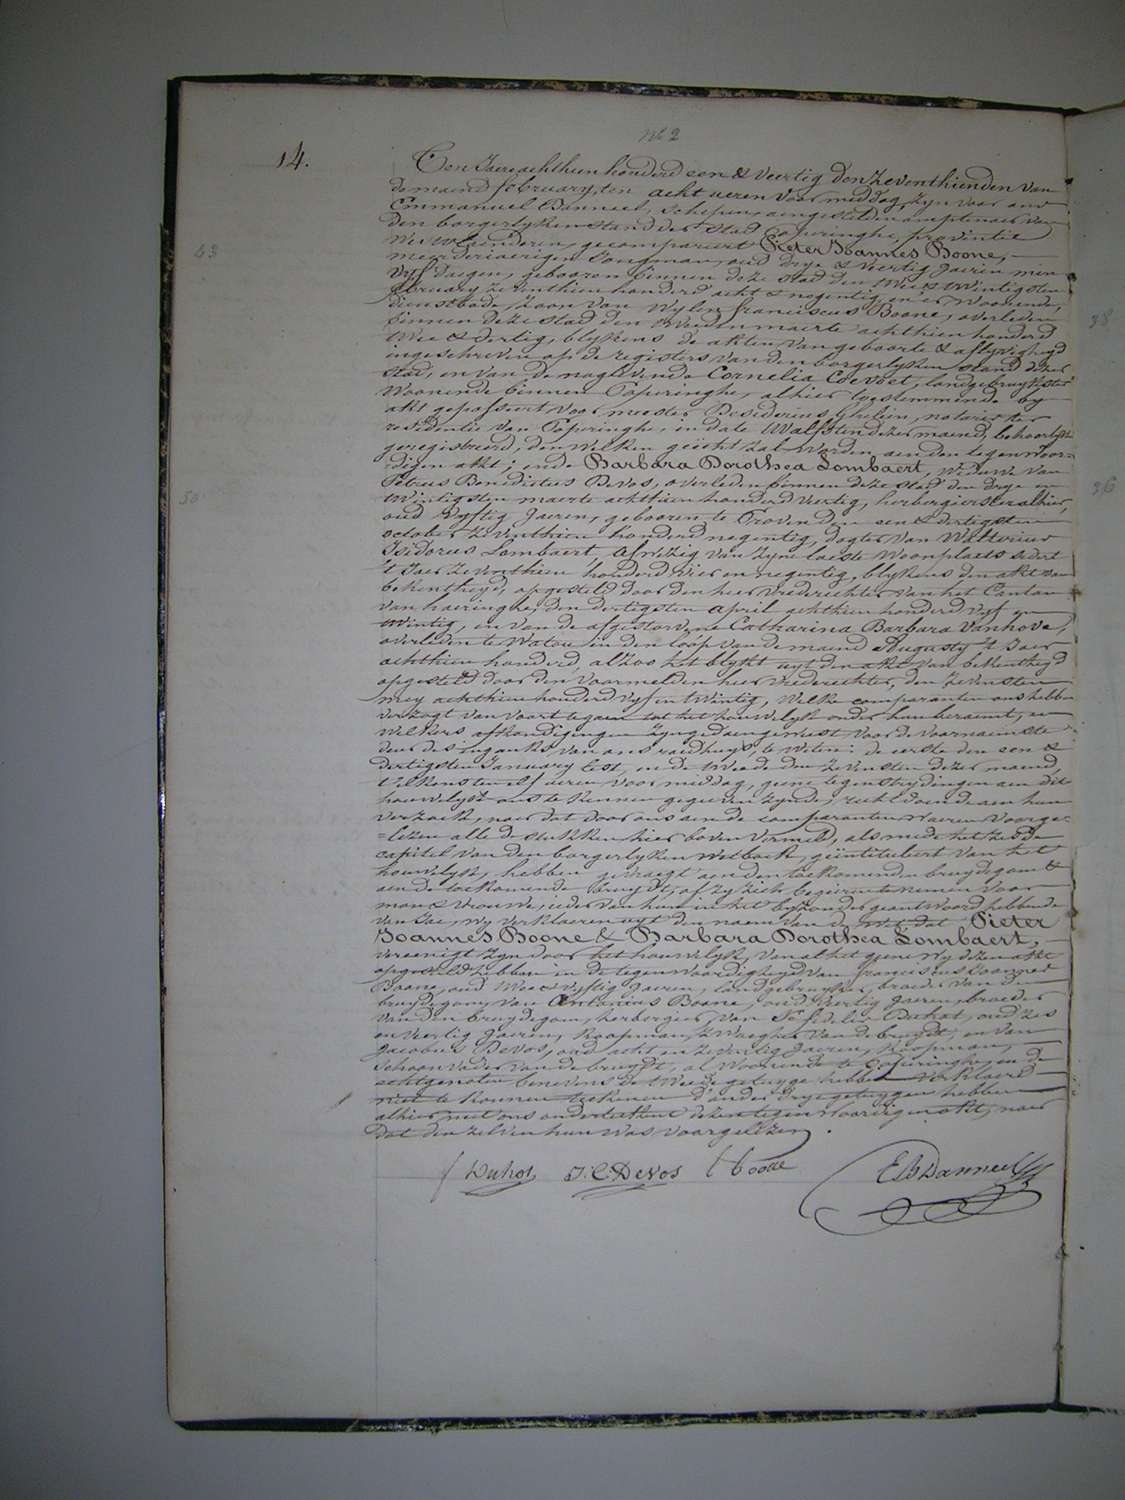 No 2
14.
Ten Jaere achthien honderd een & veertig den zeventhienden van
de maend february, ten acht ueren voor middag, zyn voor ons
Emmanuel Banneel, schepen, aengestelden amptenaer van
den borgerlyken stand der stad Poperinghe, provintie
West Vlaenderen, gecompareert Pieter Joannes Boone,
meerderjaerigen Jongman, oud drye & veertig Jaeren min
vyf daegen, gebooren binnen deze stad den twee & twintigsten
february zeventhien honderd acht & negentig, en er woonende,
dienstbode, zoon van wylen franciscus Boone, overleden
binnen deze stad den tweeden maerte achthien honderd
twee & dertig, blykens de akten van geboorte & aflyvigheyd
ingeschreven op de registers van den borgerlyken stand dezer
stad, en van de naglevende Cornelia Coevoet, landgebruykster
woonende binnen Poperinghe, alhier toestemmende by
akt gepasseert voor meester Desiderius Ghelein, notaris ter
residentie van Poperinghe, in date twalfsten dezer maend, behoorlyk
geregistreerd, den welken gehecht zal worden aen den tegenwoor-
digen akt; ende Barbara Dorothea Lombaert, weduwe van
Petrus Benedictus Devos, overleden binnen deze stad den drye en
twintigsten maerte achthien honderd veertig, herbergierster alhier,
oud vyftig Jaeren, gebooren te Proven den een & dertigsten
october zeventhien honderd negentig, dogter van Walterius
Isidorus Lombaert, afwezig van zyne laeste woonplaets sedert
't Jaer zeventhien honderd vier en negentig, blykens den akt van
bekentheyd, opgesteld door den heer vrederechter van het Canton
van haeringhe, den dertigsten april achthien honderd vyf en
twintig, en van de afgestorvene Catharina Barbara Vanhove,
overleden te Watou in den loop van de maend Augusty 't Jaer
achthien honderd, alzoo het blykt uyt den akt van bekentheyd
opgesteld door den voormelden heer vrederechter, den zevensten
mey achthien honderd vyf en twintig, welke comparanten ons hebben
verzogt van voort te gaen tot het houwelyk onder hun beraemt, en
welkers afkondigingen zyn gedaen geweest voor de voornaemste
deur des inganks van ons raedhuys, te weten: de eerste den een &
dertigsten January lest, en de tweede den zevensten dezer maend,
telkens ten elf ueren voor middag, geene tegenstrydingen aen dit
houwelyk ons te kennen gegeven zynde, recht doende aen hun
verzoek, naer dat door ons aen de comparanten waeren voorge-
=lezen alle de stukken hier boven vermeld, als mede het zesde
capitel van den borgerlyken wetboek, geintituleert van het
houwelyk, hebben gevraegt aen den toekomenden bruydegom &
aen de toekomende bruydt, of zy zich begeeren te nemen voor
man & vrouwe, ieder van hun in het byzonder geantwoord hebbende
van Jae, wy verklaeren uyt den naem van de wet, dat Pieter
Joannes Boone & Barbara Dorothea Lombaert,
vereenigt zyn door het houwelyk, van al het geene wy dezen akt
opgesteld hebben in de tegenwoordigheyd van franciscus
Boone, oud twee & vyftig Jaeren, landgebruyker, broeder van den
bruydegom, van Antonius Boone, oud veertig Jaeren, broeder
van den bruydegom, herbergier, van Sr fidelis Duhot, oud zes
en veertig Jaeren, koopman, zwaegher van de bruydt, en van
Jacobus Devos, oud acht en zeventig Jaeren, koopman,
schoonvader van de bruydt, al woonende te Poperinghe, en de
echtgenoten benevens de tweede getuyge hebben verklaerd
niet te konnen teekenen d'ander drye getuygen hebben
alhier met ons onderteekent dezen tegenwoordigen akt, naer
dat den zelven hun was voorgelezen.
f Duhot J. C. Devos Boone E Banneel
63
50
38
36